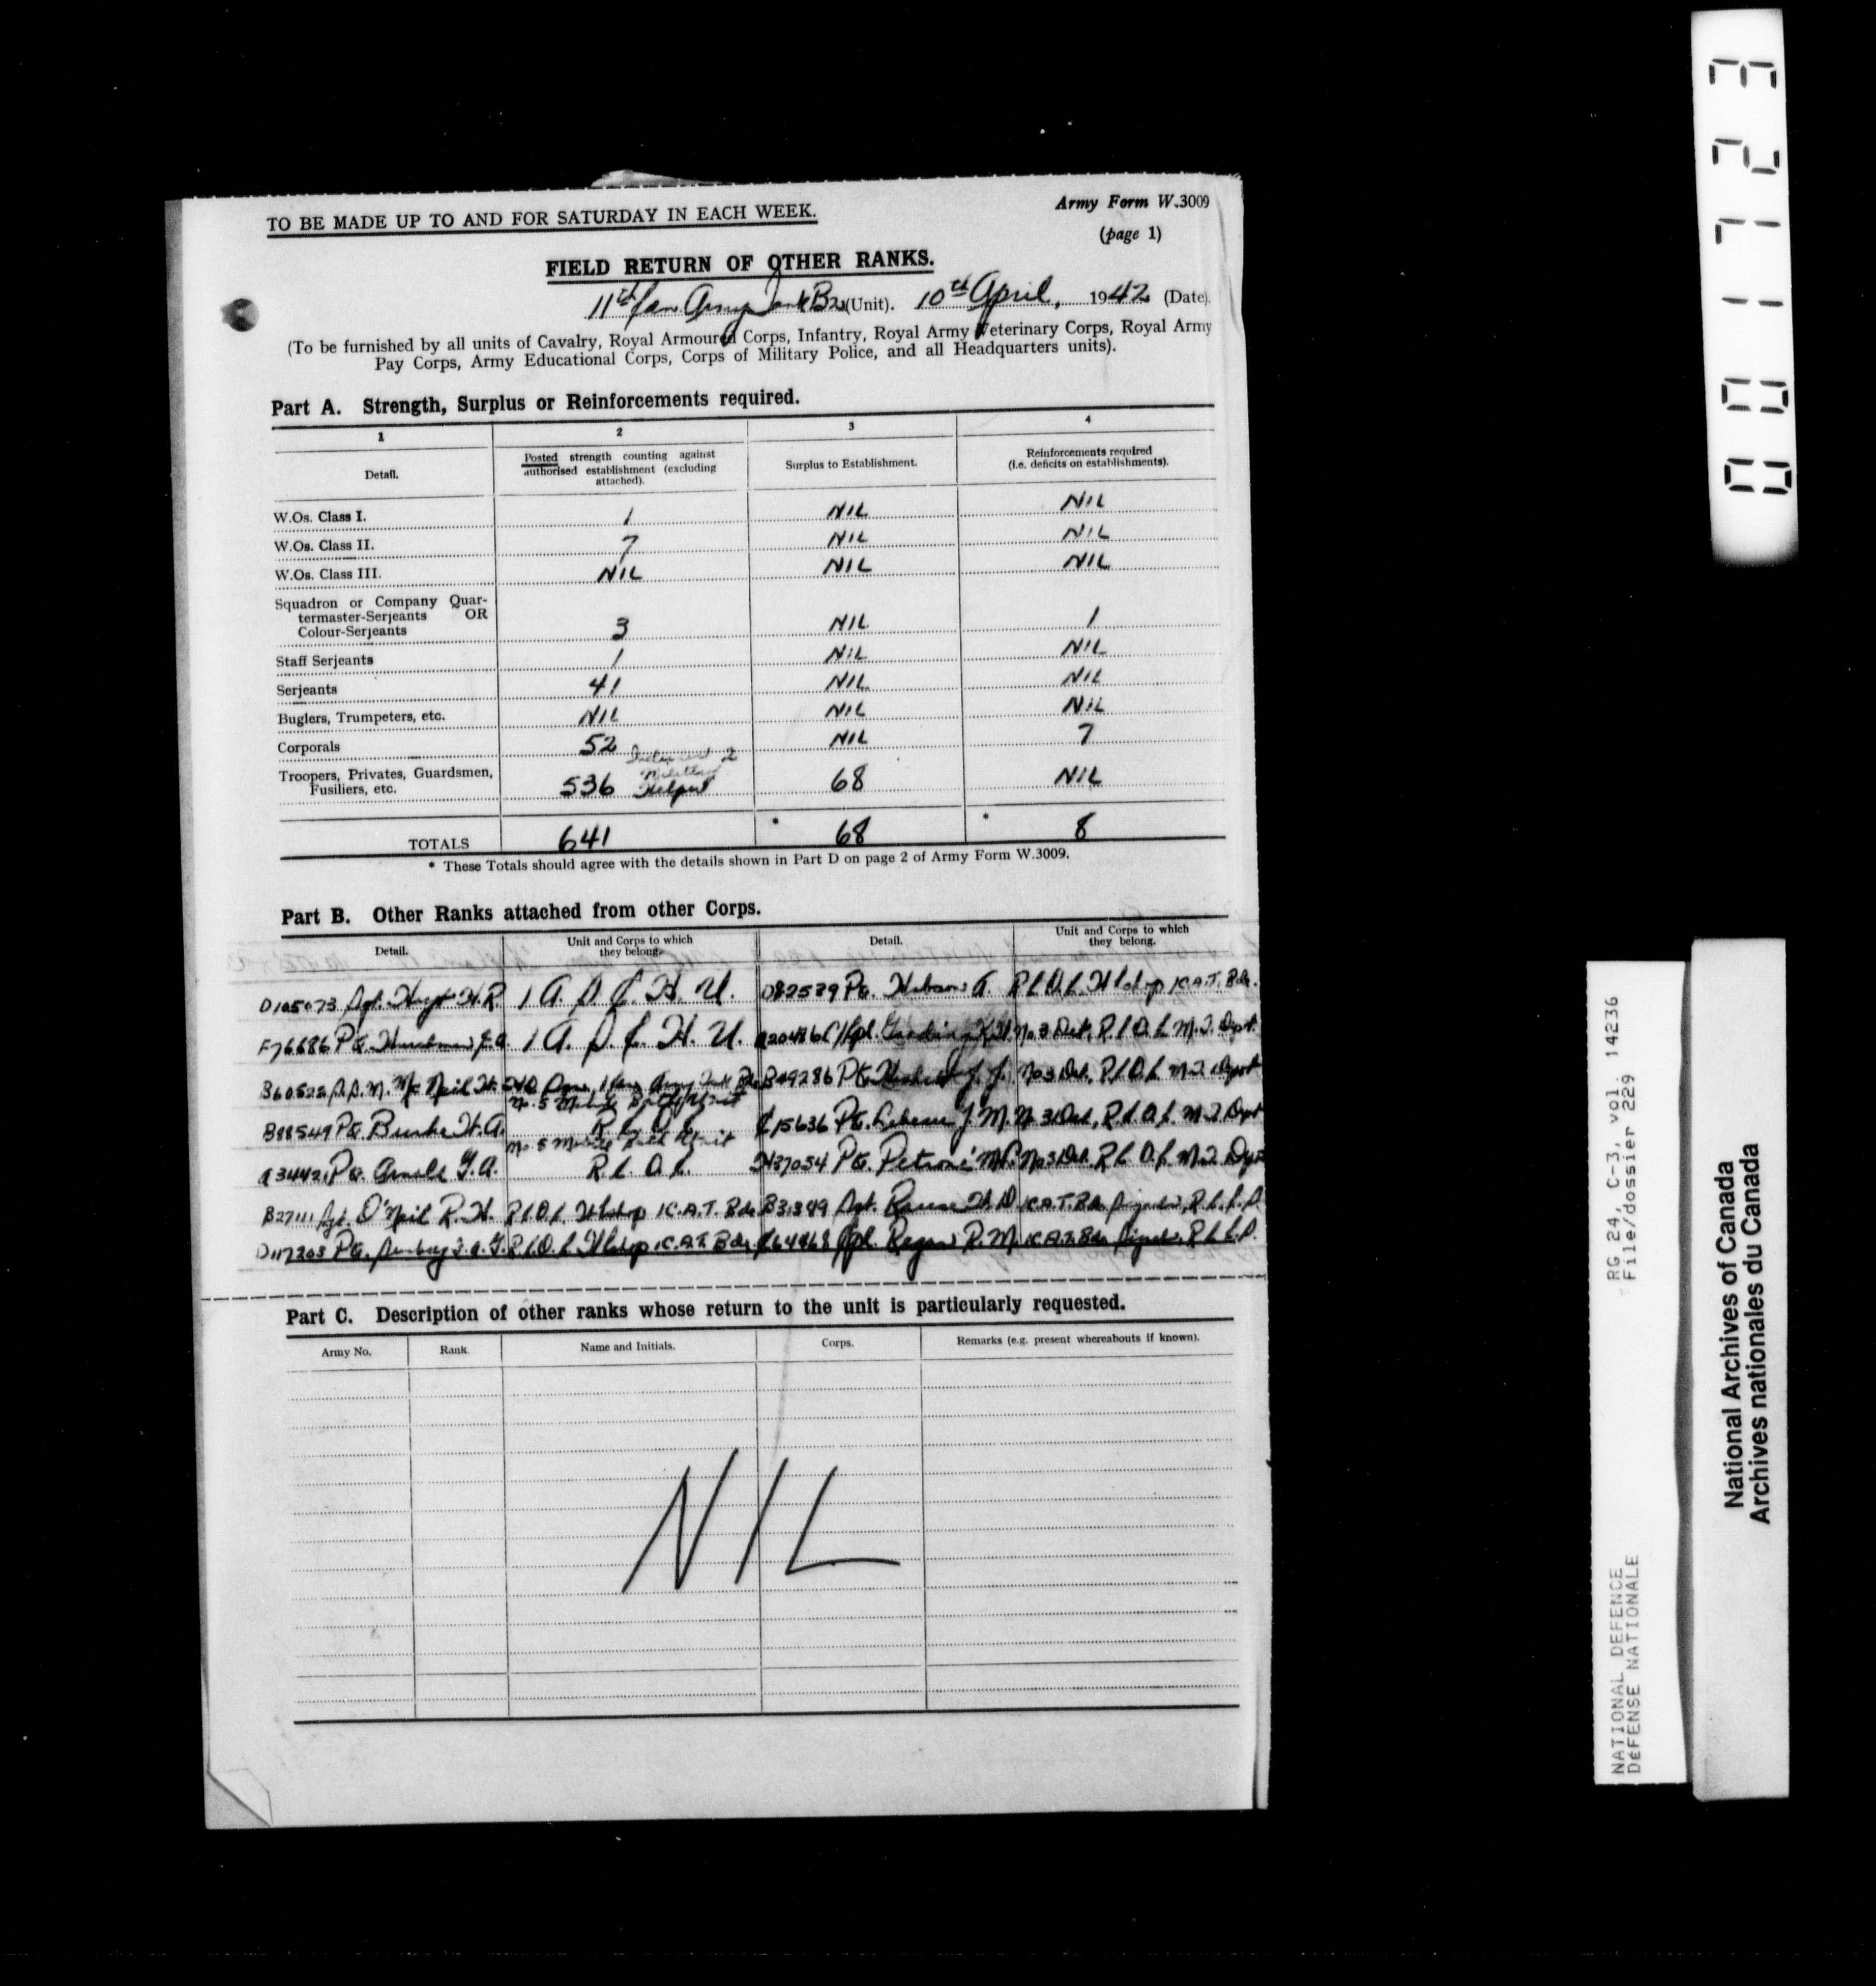 TO BE MADE UP TO AND FOR SATURDAY IN EACH WEEK.
Army Form W.3009
(page 1)
FIELD RETURN OF OTHER RANKS.
11th Can Army Tank Bn (Unit). 10th April, 1942 (Date).
(To be furnished by all units of Cavalry, Royal Armoured Corps, Infantry, Royal Army Veterinary Corps, Royal Army
Pay Corps, Army Educational Corps, Corps of Military Police, and all Headquarters units).
Part A. Strength, Surplus or Reinforcements required.
1 2 3 4
Detail.
Posted strength counting against
authorised establishment (excluding
attached).
Surplus to Establishment.
Reinforcements required
(i.e. deficits on establishments).
W.Os. Class I. 1 NIL NIL
W.Os. Class II. 7 NIL NIL
W.Os. Class III. NIL NIL NIL
Squadron or Company Quar-
termaster-Serjeants OR
Colour-Serjeants 3 NIL 1
Staff Serjeants 1 NIL NIL
Serjeants 41 NIL NIL
Buglers, Trumpeters, etc. NIL NIL NIL
Corporals 52 NIL 7
Troopers, Privates, Guardsmen,
Fusiliers, etc. 536 68 NIL
TOTALS 641 * 68 * 8
* These Totals should agree with the details shown in Part D on page 2 of Army Form W.3009.
Part B. Other Ranks attached from other Corps.
Detail.
Unit and Corps to which
they belong.
Detail.
Unit and Corps to which
they belong.
D105073 Sgt. H.R. 1 A. S. C. H. U. D82539 Pte. A. R.C.O.C. 1 C.A.T. Bde.
F76686 Pte. 1 A. S. C. H. U. Cpl. No 3 Det, R.C.O.C. M.T. Dept.
Mc Neil Army Tank Bde B49286 Pte. J. J. No 3 Det, R.C.O.C. M.T. Depot
No. 5 Mobile Bath Unit
B88549 Pte. Burke H.A. R.C.O.C. C15636 Pte. J. M. No 3 Det, R.C.O.C. M.T. Dept
No. 5 Mobile Bath Unit
A34421 Pte. Arnold G.A. R.C.O.C. H37054 Pte. Petroni No 3 Det. R.C.O.C. M.T. Dept
B27111 Sgt. O'Neil R.H. R.C.O.C. 1 C.A.T. Bde. Sgt. 1 C.A.T. Bde Signals, R.C.C.S.
D117203 Pte. R.C.O.C. 1 C.A.T. Bde. Cpl. R. M. 1 C.A.T. Bde Signals, R.C.C.S.
Part C. Description of other ranks whose return to the unit is particularly requested.
Army No. Rank. Name and Initials. Corps. Remarks (e.g. present whereabouts if known).
NIL
001723
RG 24, C-3, vol. 14236
File/dossier 229
NATIONAL DEFENCE
DÉFENSE NATIONALE
National Archives of Canada
Archives nationales du Canada